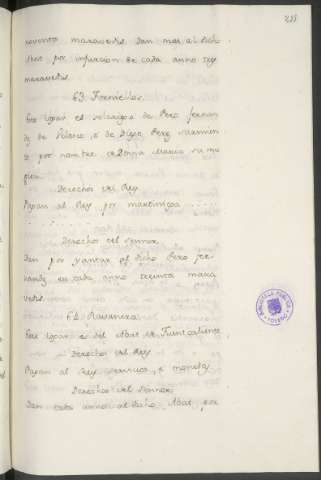 noventa maravedis. Dan mas al dicho
Pero por infurcion de cada anno seys
maravedis.
63. Forniellos.
Este logar es solariego de Pero fernan
dez de Velasco, e de Diego Perez Sarmien
to por nombre de Donna Maria su mu
gier.
Derechos del Rey
Pagan al Rey por martiniega .....
Derechos del Sennor.
Dan por yantar al dicho Pero fer
nandz en cada anno treinta mara
vedis.
64.
Este logar es del Abat de Fuentcaliente
Derechos del Rey
Pagan al Rey servicios, e moneda
Derechos del Sennor.
Dan cada anno al dicho Abat, por
BIBLIOTECA PUBLICA
TOLEDO